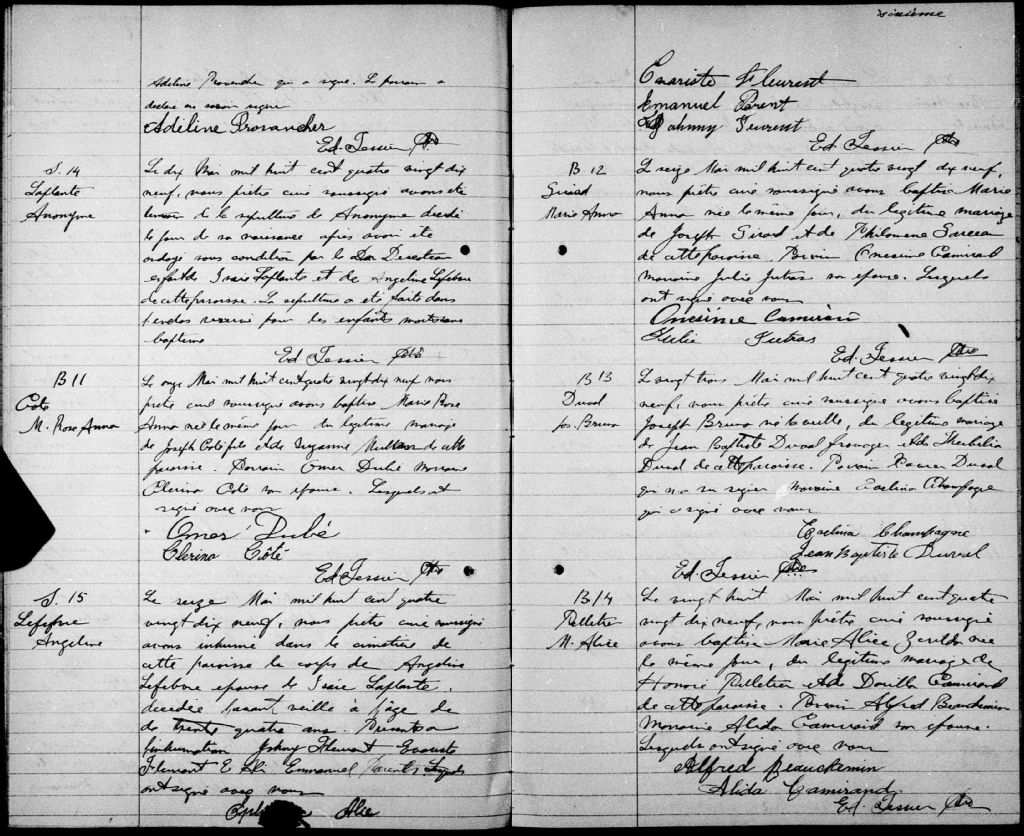 Adéline Provencher qui a signé. Le parrain a
déclaré ne savoir signer
Adéline Provancher
Ed. Tessier Ptre
S. 14
Laplante
Anonyme
Le dix Mai mil huit cent quatre vingt dix
neuf, nous prêtre curé soussigné avons été
témoin de la sépulture de Anonyme décédé
le jour de sa naissance après avoir été
ondoyé sous condition par le
enfant de Isaïe Laplante et de Angéline Lefebvre
de cette paroisse. La sépulture a été faite dans
l'enclos réservé pour les enfants morts sans
baptême
Ed. Tessier Ptre
B 11
Côté
M. Rose Anna
Le onze Mai mil huit cent quatre vingt dix neuf nous
prêtre curé soussigné avons baptisé Marie Rose
Anna née le même jour du légitime mariage
de Joseph Côté fils et de Suzanne de cette
paroisse. Parrain Omer Dubé Marraine
Clerina Côté son épouse. Lesquels ont
signé avec nous
Omer Dubé
Clerina Côté
Ed. Tessier Ptre
S. 15
Lefebvre
Angéline
Le seize Mai mil huit cent quatre
vingt dix neuf, nous prêtre curé soussigné
avons inhumé dans le cimetière de
cette paroisse le corps de Angéline
Lefebvre épouse de Isaïe Laplante,
décédée l'avant veille à l'âge de
de trente quatre ans. Présents à
l'inhumation Johny Fleurent Evariste
Fleurent Emmanuel Parent Lesquels
ont signé avec nous
sixième
Evariste Fleurent
Emanuel Parent
Johnny Feurent
Ed. Tessier Ptre
B 12
Girard
Marie Anna
Le seize Mai mil huit cent quatre vingt dix neuf,
nous prêtre curé soussigné avons baptisé Marie
Anna née le même jour, du légitime mariage
de Joseph Girard et de Philomène
de cette paroisse. Parrain Onésime Camirand
marraine Julie Jutras son épouse. Lesquels
ont signé avec nous
Onésime Camiran
Julie Jutras
Ed. Tessier Ptre
B 13
Duval
Jos. Bruno
Le vingt trois Mai mil huit cent quatre vingt dix
neuf, nous prêtre curé soussigné avons baptisé
Joseph Bruno né la veille, du légitime mariage
de Jean Baptiste Duval fromager et de
Duval de cette paroisse. Parrain Xavier Duval
qui n'a su signer marraine Evelina Champagne
qui a signé avec nous
Evelina Champagne
Jean Baptiste Duval
Ed. Tessier Ptre
B 14
Pelletier
M. Alice
Le vingt huit Mai mil huit cent quatre
vingt dix neuf, nous prêtre curé soussigné
avons baptisé Marie Alice née
le même jour, du légitime mariage de
Honoré Pelletier et de Camirand
de cette paroisse. Parrain Alfred Beauchemin
Marraine Alida Camirand son épouse.
Lesquels ont signé avec nous
Alfred Beauchemin
Alida Camirand
Ed. Tessier Ptre